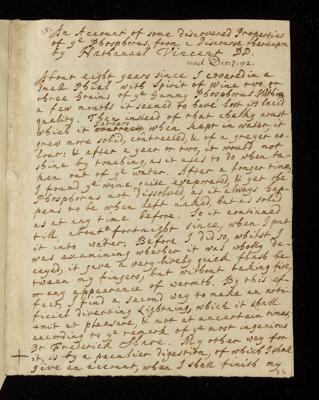 An Account of some discovered Properties
of ye Phosphorus, from a Discourse thereupon
by Nathanael Vincent DD.
read Dec: 7. 92.
About eight years since I covered in a
small Phial with Spirit of Wine two or
three Grains of ye Gummy Phosphorus. When
a few months it seemed to have lost its lucid
quality. Then instead of that chalky crust
which it contracts when kept in water it
grew more solid, contracted, & of a greyer co-
lour: & after a year or two, it would not
shine by touching, as it uses to do when ta-
ken out of ye water. After a longer time,
I found ye wine quite evaporated, & yet the
Phosphorus not dissolved as it always hap-
pens to be when left naked, but as solid
as at any time before. So it continued
till about a fortnight since, when I put
it into water. Before I did so, whilst I
was examining whether it was wholly de-
cayed, it gave a very lively quick flash be-
tween my fingers, but without taking fire,
or any appearance of warmth. By this ef-
fect, I find a second way to make an arti-
ficial diverting Lightning, which it shall
emit at pleasure, & not at uncertain times,
according to ye remark of ye most ingenious
Dr Frederick Slare. My other way for
it, is by a peculiar digestion, of which I shall
give an account, when I shall finish my